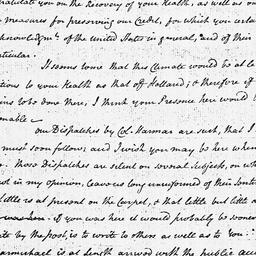 gratulate you on the Recovery of your Health, as well as on
measures for preserving our Credit, for which you certai
cknowledgmts of the United States in general, and of their
rticular.
It seems to me that this Climate would be at le
tious to your Health as that of Holland; & therefore if
ins to be done there, I think your Presence here would b
onable —
our Dispatches by Col. Harmar are such, that I
must soon follow; and I wish you may be here when
Those Dispatches are silent on several Subjects, on wh
not in my opinion, to leave us long uninformed of their Sent
little is at present on the Carpet, & that little but little a
was here. if you were here it would probably be sooner
ate by the post, is to write to others as well as to you.
armichael is at Length arrived with the public Acc